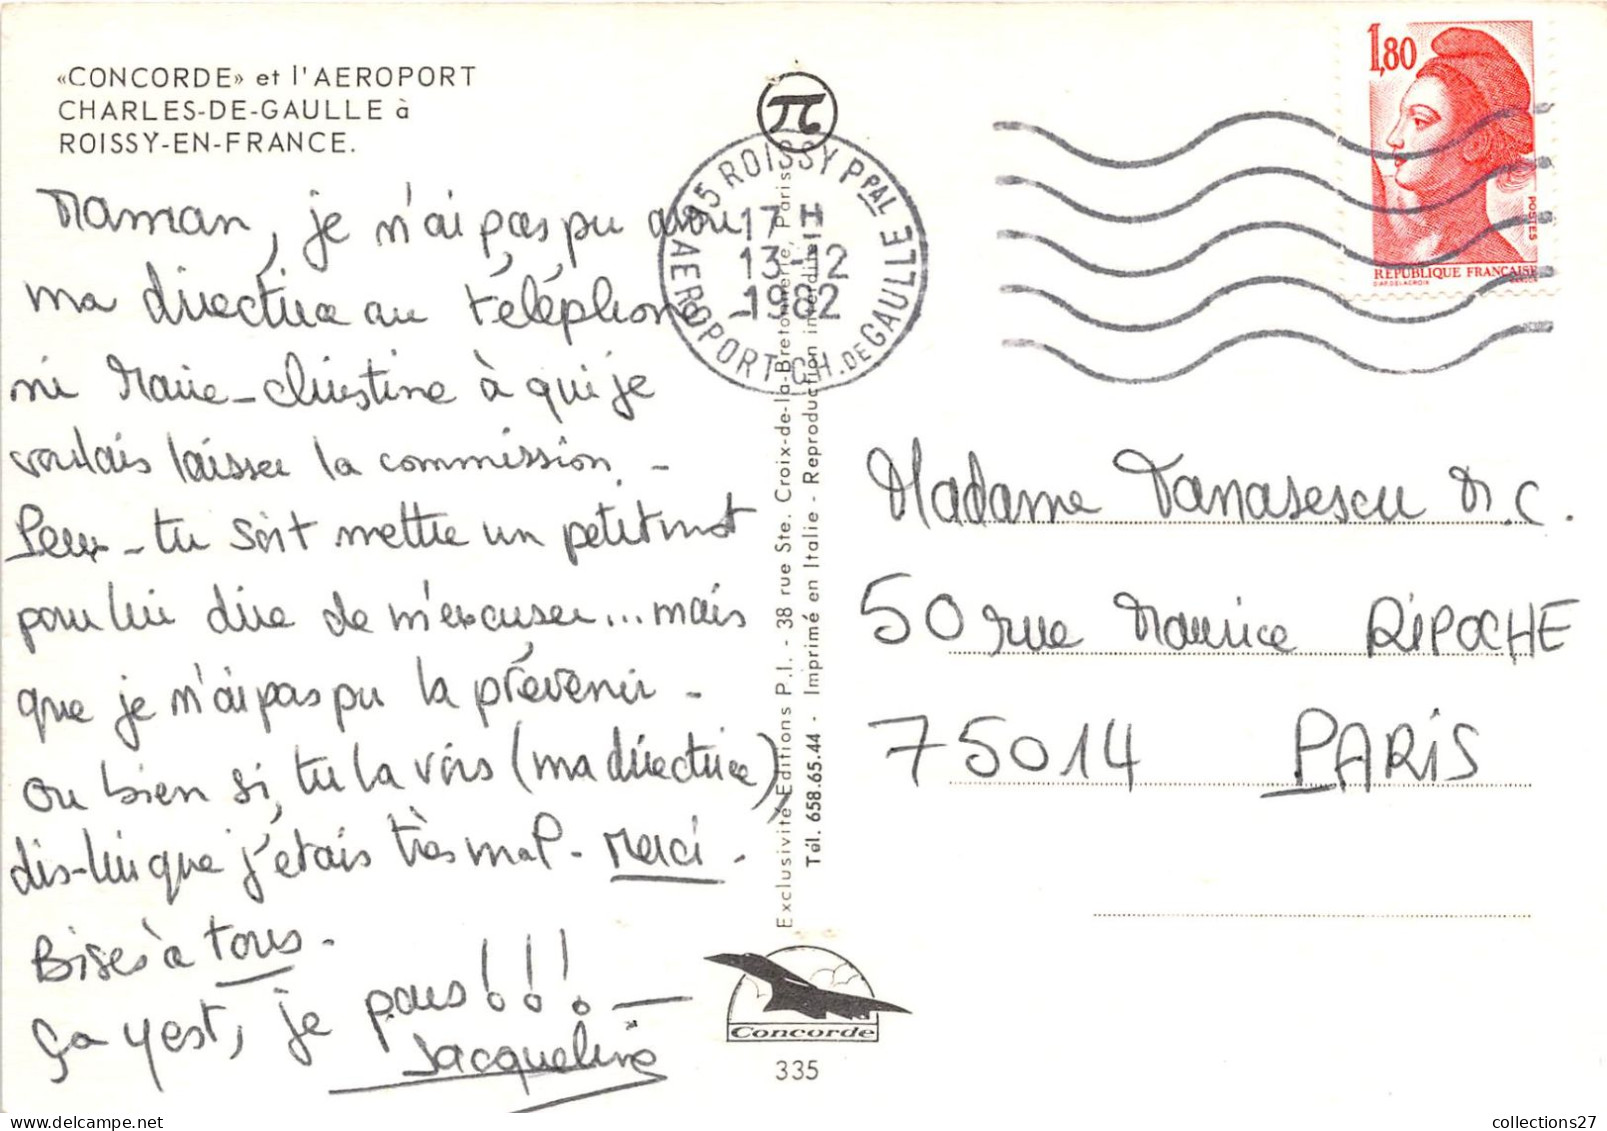 «CONCORDE» et l'AEROPORT
CHARLES-DE-GAULLE à
ROISSY-EN-FRANCE.
Maman, je n'ai pas pu avoir
ma directrice au téléphone -
ni Marie-Christine à qui je
voulais laisser la commission -
Peux-tu soit mettre un petit mot
pour lui dire de m'excuser... mais
que je n'ai pas pu la prévenir -
ou bien si, tu la vois (ma directrice),
dis-lui que j'étais très mal - Merci.
Bises à tous -
ça y est, je pars!!! -
Jacqueline
95 ROISSY Ppal
AEROPORT CH. DE GAULLE
17 H
13-12
1982
Exclusivité Editions P.I. - 38 rue Ste. Croix-de-la-Bretonnerie, Paris
Tél. 658.65.44 - Imprimé en Italie - Reproduction interdite
Concorde
335
1,80
POSTES
REPUBLIQUE FRANÇAISE
D'AP. DELACROIX GANDON
Madame Tanasescu M.C.
50 rue Maurice RIPOCHE
75014 PARIS
collections27